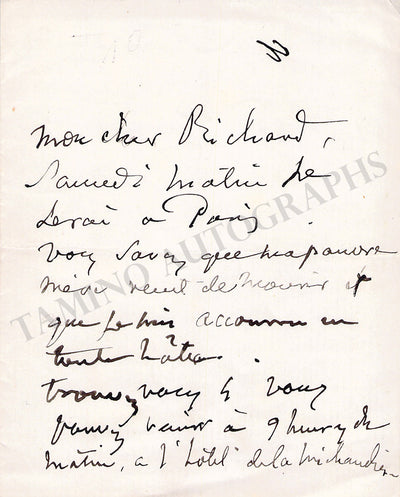 Mon cher Richard,
Samedi matin je
serai à Paris.
Vous savez que ma pauvre
mère vient de mourir et
que je suis accouru en
toute hâte.
trouvez vous si vous
pouvez venir à 9 heures du
matin, à l'hôtel de la Michaudière
TAMINO AUTOGRAPHS